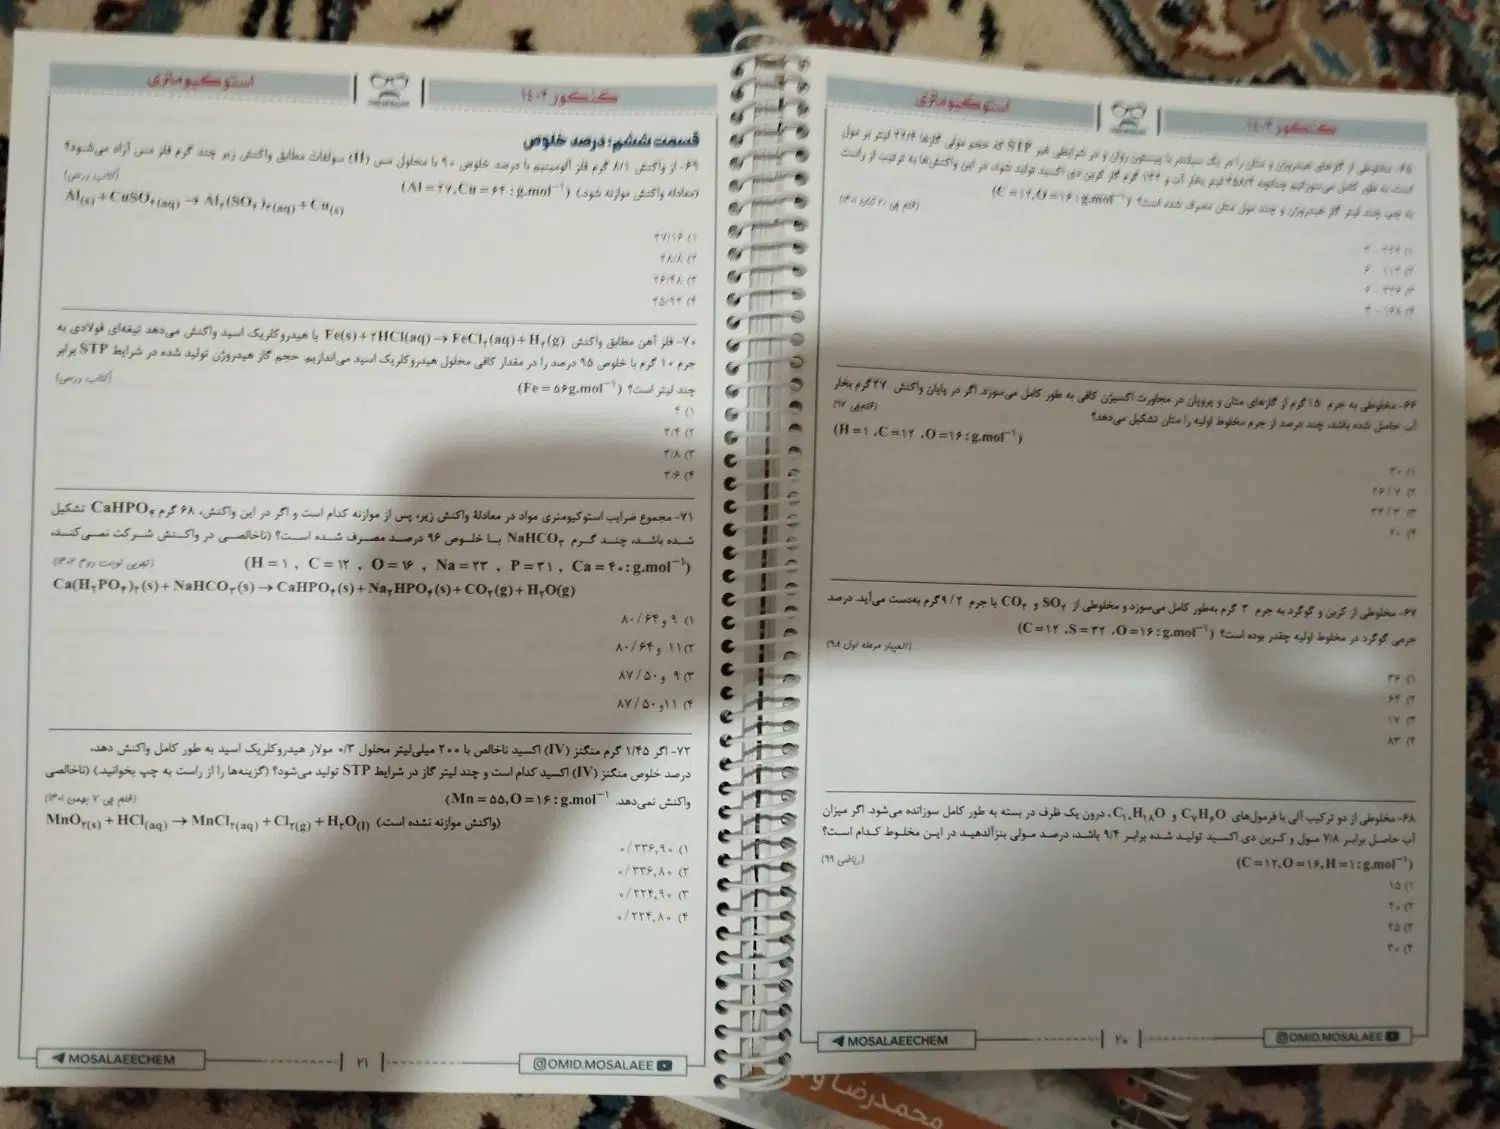 استوکیومتری
کنکور ۱۴۰۴
۶۵- مخلوطی از گازهای هیدروژن و متان را در یک سیلندر با پیستون روان و در شرایطی غیر STP که حجم مولی گازها ۲۲/۴ لیتر بر مول
است، به طور کامل می‌سوزانیم چنانچه
لیتر بخار آب و ۱۳۲ گرم گاز کربن دی اکسید تولید شود، در این واکنش‌ها به ترتیب از راست
به چپ چند لیتر گاز هیدروژن و چند مول متان مصرف شده است؟ (C = ۱۲, O = ۱۶ : g.mol⁻¹)
(قلم چی ۲۰ آبان ۱۴۰۱)
۱) ۲۲۴ - ۳
۲) ۱۱۲ - ۶
۳) ۳۳۶ - ۶
۴) ۱۶۸ - ۳
۶۶- مخلوطی به جرم ۱۵ گرم از گازهای متان و پروپان در مجاورت اکسیژن کافی به طور کامل می‌سوزد. اگر در پایان واکنش ۲۷ گرم بخار
آب حاصل شده باشد، چند درصد از جرم مخلوط اولیه را متان تشکیل می‌دهد؟
(قلم‌چی ۹۷)
(H = ۱ ، C = ۱۲ ، O = ۱۶ : g.mol⁻¹)
۱) ۳۰
۲) ۲۶/۷
۳) ۳۳/۳
۴) ۲۰
۶۷- مخلوطی از کربن و گوگرد به جرم ۳ گرم به‌طور کامل می‌سوزد و مخلوطی از SO₂ و CO₂ با جرم ۹/۲ گرم به‌دست می‌آید. درصد
جرمی گوگرد در مخلوط اولیه چقدر بوده است؟ (C = ۱۲ ، S = ۳۲ ، O = ۱۶ : g.mol⁻¹)
(المپیاد مرحله اول ۹۸)
۱) ۳۶
۲) ۶۴
۳) ۱۷
۴) ۸۳
۶۸- مخلوطی از دو ترکیب آلی با فرمول‌های C₇H₆O و C₁₀H₁₈O، درون یک ظرف در بسته به طور کامل سوزانده می‌شود. اگر میزان
آب حاصل برابر ۷/۸ مول و کربن دی اکسید تولید شده برابر ۹/۴ باشد، درصد مولی بنزآلدهید در این مخلوط کدام است؟
(C = ۱۲, O = ۱۶, H = ۱ : g.mol⁻¹)
(ریاضی ۹۹)
۱) ۱۵
۲) ۲۰
۳) ۲۵
۴) ۳۰
MOSALAEECHEM
۲۰
OMID.MOSALAEE
استوکیومتری
کنکور ۱۴۰۴
قسمت ششم: درصد خلوص
۶۹- از واکنش ۸/۱ گرم فلز آلومینیم با درصد خلوص ۹۰ با محلول مس (II) سولفات مطابق واکنش زیر چند گرم فلز مس آزاد می‌شود؟
(معادله واکنش موازنه شود.) (Al = ۲۷, Cu = ۶۴ : g.mol⁻¹)
(کتاب درسی)
Al(s) + CuSO₄(aq) → Al₂(SO₄)₃(aq) + Cu(s)
۱) ۲۷/۱۶
۲) ۲۸/۸
۳) ۲۶/۴۸
۴) ۲۵/۹۲
۷۰- فلز آهن مطابق واکنش Fe(s) + ۲HCl(aq) → FeCl₂(aq) + H₂(g) با هیدروکلریک اسید واکنش می‌دهد تیغه‌ای فولادی به
جرم ۱۰ گرم با خلوص ۹۵ درصد را در مقدار کافی محلول هیدروکلریک اسید می‌اندازیم. حجم گاز هیدروژن تولید شده در شرایط STP برابر
چند لیتر است؟ (Fe = ۵۶ g.mol⁻¹)
(کتاب درسی)
۱) ۴
۲) ۳/۴
۳) ۳/۸
۴) ۳/۶
۷۱- مجموع ضرایب استوکیومتری مواد در معادلهٔ واکنش زیر، پس از موازنه کدام است و اگر در این واکنش، ۶۸ گرم CaHPO₄ تشکیل
شده باشد، چند گرم NaHCO₃ با خلوص ۹۶ درصد مصرف شده است؟ (ناخالصی در واکنش شرکت نمی‌کند،
(H = ۱ , C = ۱۲ , O = ۱۶ , Na = ۲۳ , P = ۳۱ , Ca = ۴۰ : g.mol⁻¹)
(تجربی نوبت دوم ۱۴۰۲)
Ca(H₂PO₄)₂(s) + NaHCO₃(s) → CaHPO₄(s) + Na₂HPO₄(s) + CO₂(g) + H₂O(g)
۱) ۹ و ۸۰/۶۴
۲) ۱۱ و ۸۰/۶۴
۳) ۹ و ۸۷/۵۰
۴) ۱۱ و ۸۷/۵۰
۷۲- اگر ۱/۴۵ گرم منگنز (IV) اکسید ناخالص با ۲۰۰ میلی‌لیتر محلول ۰/۳ مولار هیدروکلریک اسید به طور کامل واکنش دهد،
درصد خلوص منگنز (IV) اکسید کدام است و چند لیتر گاز در شرایط STP تولید می‌شود؟ (گزینه‌ها را از راست به چپ بخوانید.) (ناخالصی
واکنش نمی‌دهد. (Mn = ۵۵, O = ۱۶ : g.mol⁻¹
(قلم چی ۷ بهمن ۱۴۰۱)
(واکنش موازنه نشده است.) MnO₂(s) + HCl(aq) → MnCl₂(aq) + Cl₂(g) + H₂O(l)
۱) ۰/۳۳۶,۹۰
۲) ۰/۳۳۶,۸۰
۳) ۰/۲۲۴,۹۰
۴) ۰/۲۲۴,۸۰
MOSALAEECHEM
۲۱
OMID.MOSALAEE
محمدرضا و